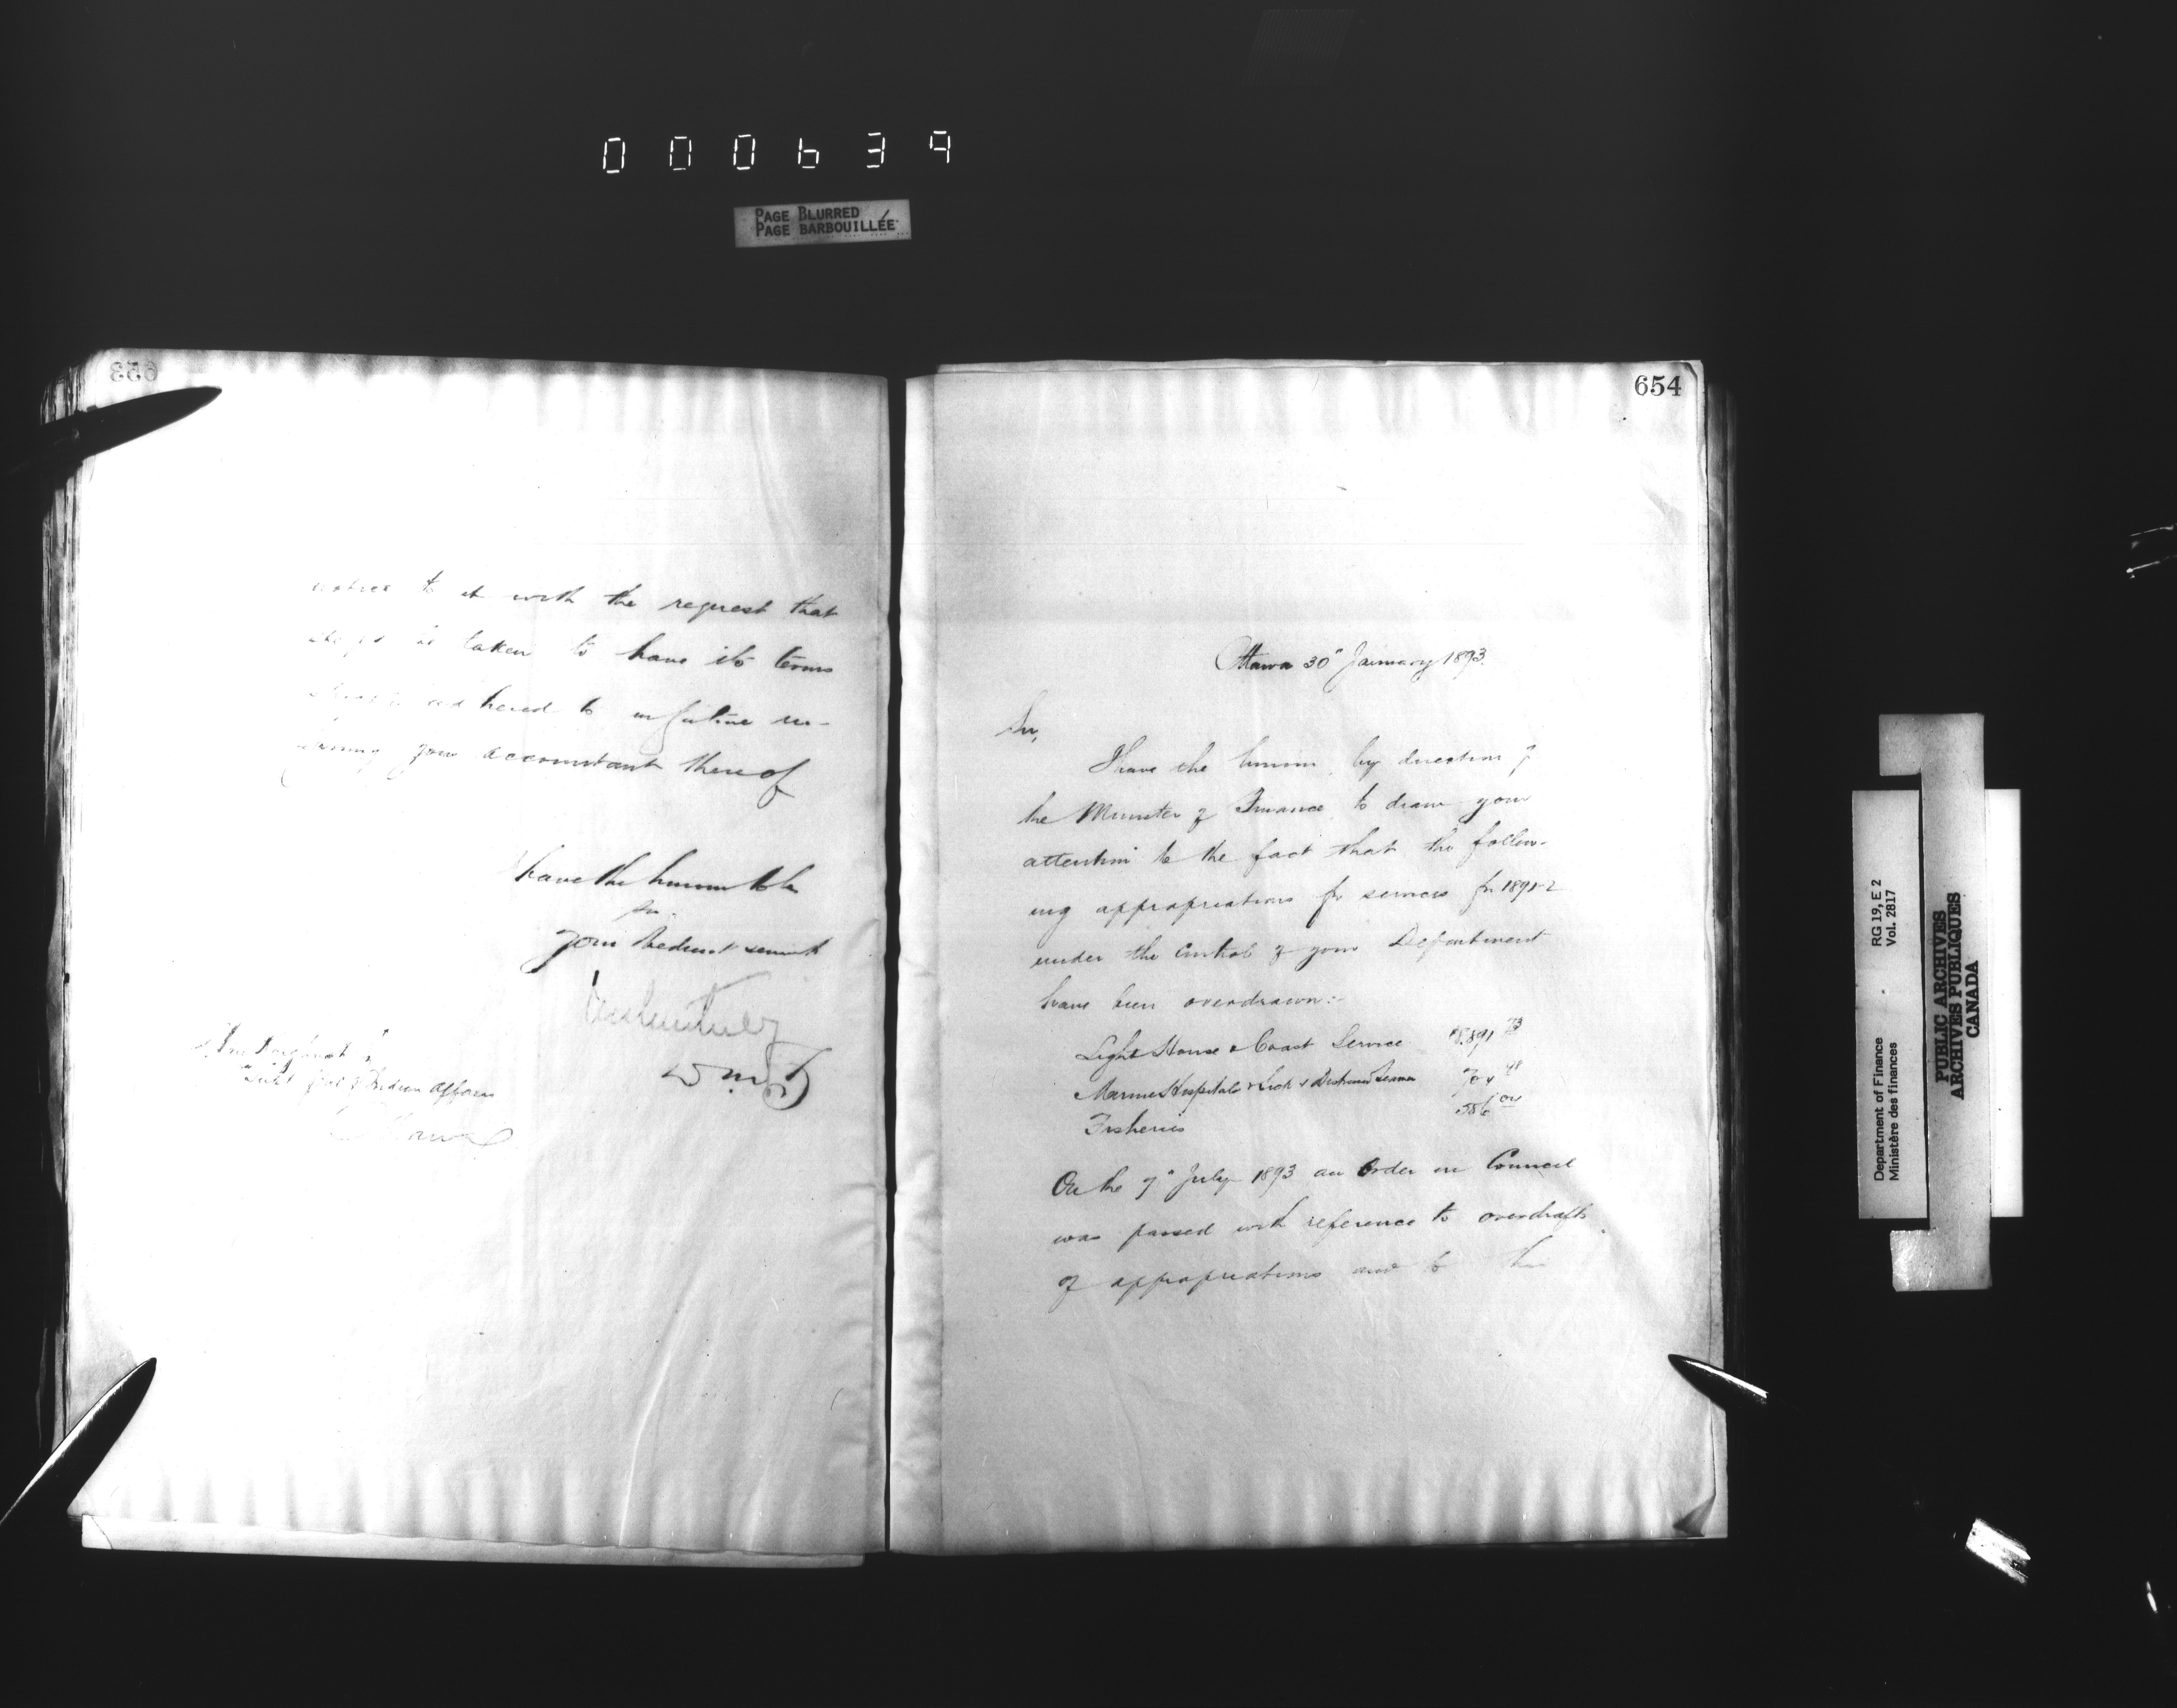 000639
PAGE BLURRED
PAGE BARBOUILLÉE
653
to it with the request that
taken to have its terms
adhered to in future in-
your accountant thereof
have the honour to be
Sir
Your obedient servant
Indian Affairs
Ottawa
654
Ottawa 30" January 1893.
Sir,
I have the honour, by direction of
the Minister of Finance, to draw your
attention to the fact that the follow-
ing appropriations for services for 1891-2
under the control of your Department
have been overdrawn:-
Light House & Coast Service 73
Marine Hospitals & Sick & Distressed Seamen 704 98
Fisheries
On the 7" July 1893 an Order in Council
was passed with reference to overdrafts
of appropriations and to
Department of Finance RG 19, E 2
Ministère des finances Vol. 2817
PUBLIC ARCHIVES
ARCHIVES PUBLIQUES
CANADA